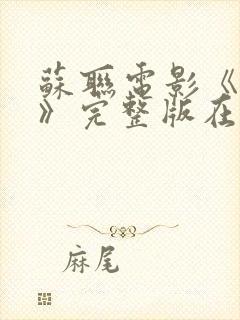 蘇聯電影《
》完整版在
麻尾